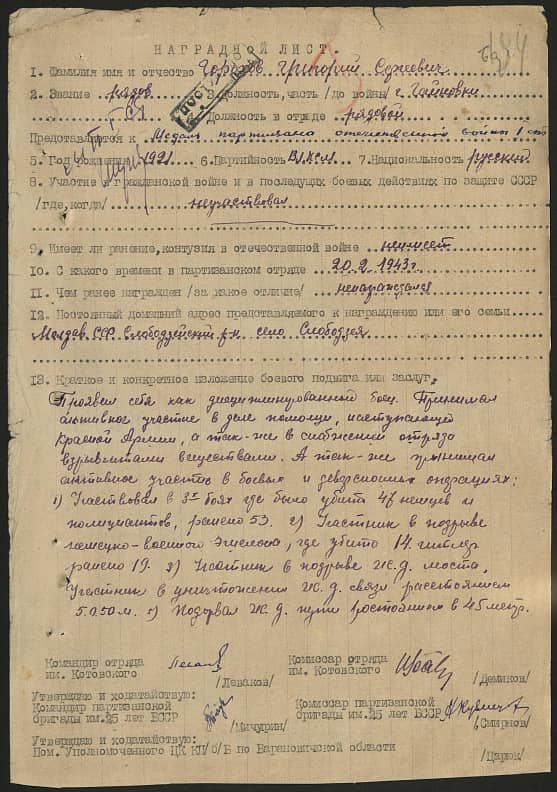 НАГРАДНОЙ ЛИСТ.
1. Фамилия имя и отчество Григорий Сергеевич
2. Звание рядов. 3. Должность, часть /до войны/ г.
Должность в отряде рядовой
Представляется к Медали партизана отечественной войны I ст
5. Год рождения 1921 6. Партийность ВЛКСМ 7. Национальность русский
8. Участие в гражданской войне и в последующих боевых действиях по защите СССР
/где, когда/ неучаствовал
9. Имеет ли ранение, контузия в отечественной войне неимеет
10. С какого времени в партизанском отряде 20.2.1943г
11. Чем ранее награжден /за какое отличие/ ненаграждался
12. Постоянный домашний адрес представляемого к награждению или его семьи
Молдав. ССР Слободзейский р-н село Слободзея
13. Краткое и конкретное изложение боевого подвига или заслуг:
Проявил себя как дисциплинированный боец. Принимал
активное участие в деле помощи, наступающей
Красной Армии, а так-же в снабжении отряда
взрывчатыми веществами. А так-же принимал
активное участие в боевых и диверсионных операциях:
1) Участвовал в 3х боях где было убито 47 немцев и
полицаитов, ранено 53. 2) Участник в подрыве
немецко-военного эшелона, где убито 14 гитлер
ранено 19. 3) Участник в подрыве ж.д. моста,
Участник в уничтожении ж.д. связи расстоянием
5.050м. Подорвал ж.д. пути расстоянием в 45 метр.
Командир отряда
им. Котовского
/Леваков/
Комиссар отряда
им. Котовского
/Демиков/
Утверждаю и ходатайствую:
Командир партизанской
бригады им.25 лет БССР
/Мичурин/
Комиссар партизанской
бригады им.25 лет БССР
/Смирнов/
Утверждаю и ходатайствую:
Пом. Уполномоченного ЦК КП/б/Б по Барановичской области
/Царюк/